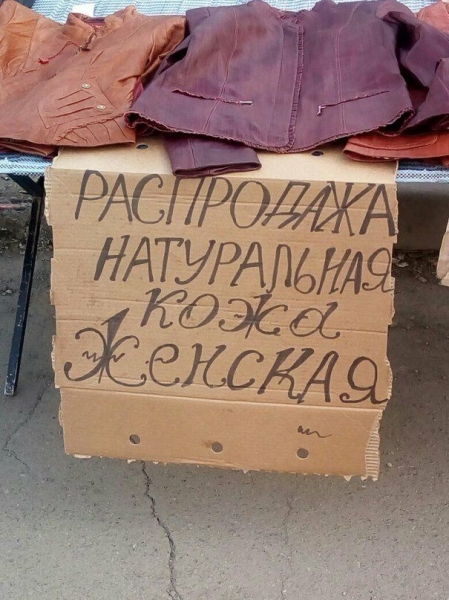 РАСПРОДАЖА
НАТУРАЛЬНАЯ
КОЖА
ЖЕНСКАЯ